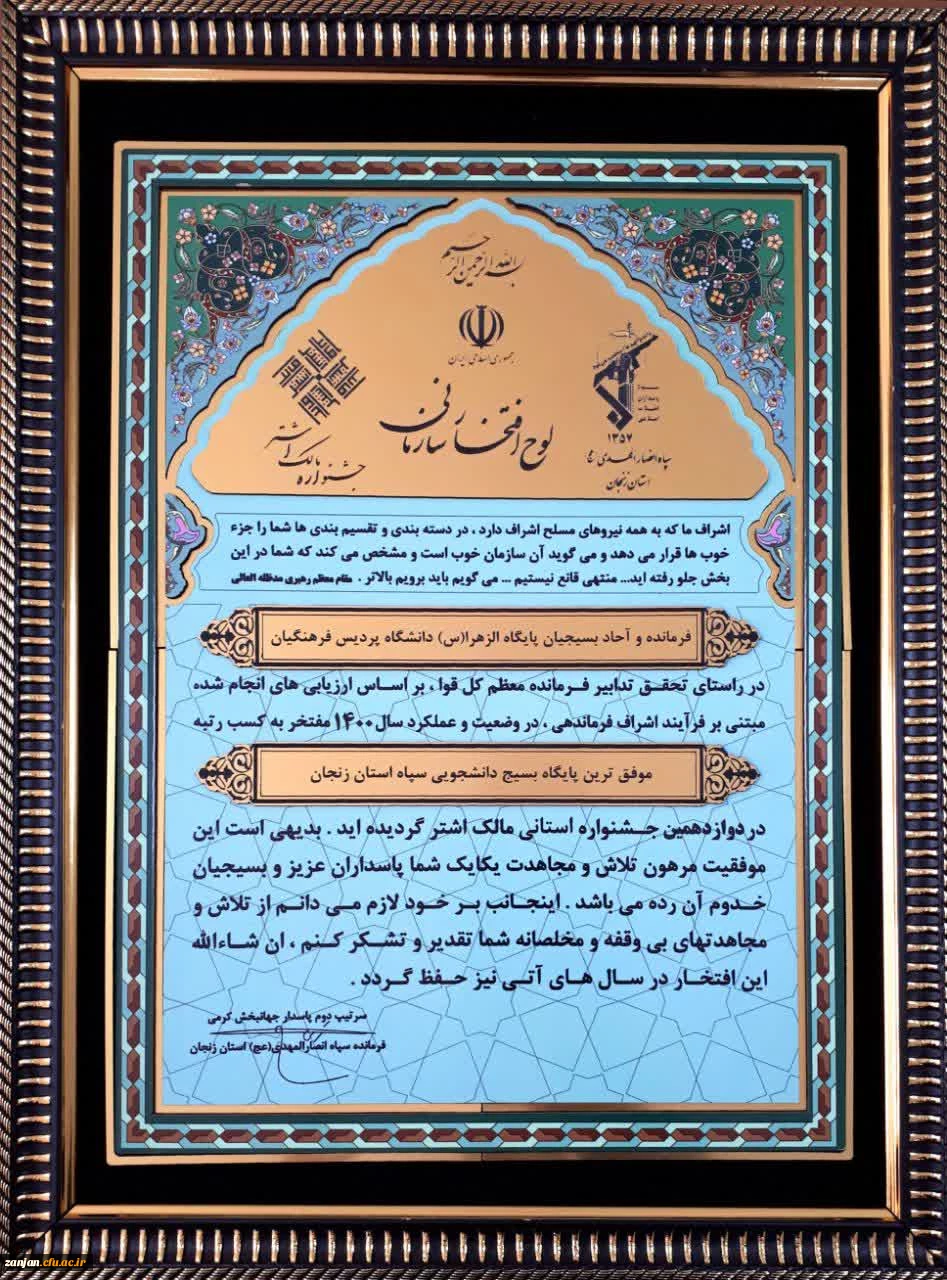 بسم الله الرحمن الرحیم
جمهوری اسلامی ایران
سپاه
پاسداران
انقلاب
اسلامی
۱۳۵۷
سپاه انصار المهدی (عج)
استان زنجان
لوح افتخار سازمانی
جشنواره مالک اشتر
اشراف ما که به همه نیروهای مسلح اشراف دارد ، در دسته بندی و تقسیم بندی ها شما را جزء
خوب ها قرار می دهد و می گوید آن سازمان خوب است و مشخص می کند که شما در این
بخش جلو رفته اید... منتهی قانع نیستیم ... می گویم باید برویم بالاتر . مقام معظم رهبری مدظله العالی
فرمانده و آحاد بسیجیان پایگاه الزهرا(س) دانشگاه پردیس فرهنگیان
در راستای تحقق تدابیر فرمانده معظم کل قوا ، بر اساس ارزیابی های انجام شده
مبتنی بر فرآیند اشراف فرماندهی ، در وضعیت و عملکرد سال ۱۴۰۰ مفتخر به کسب رتبه
موفق ترین پایگاه بسیج دانشجویی سپاه استان زنجان
در دوازدهمین جشنواره استانی مالک اشتر گردیده اید . بدیهی است این
موفقیت مرهون تلاش و مجاهدت یکایک شما پاسداران عزیز و بسیجیان
خدوم آن رده می باشد . اینجانب بر خود لازم می دانم از تلاش و
مجاهدتهای بی وقفه و مخلصانه شما تقدیر و تشکر کنم ، ان شاءالله
این افتخار در سال های آتی نیز حفظ گردد .
سرتیپ دوم پاسدار جهانبخش کرمی
فرمانده سپاه انصارالمهدی(عج) استان زنجان
zanjan.cfu.ac.ir